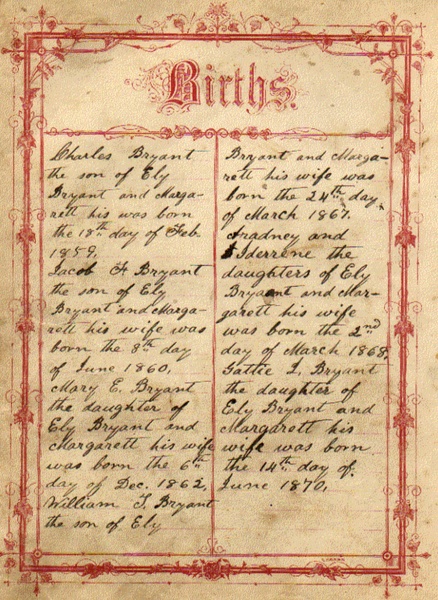 Births.
Charles Bryant
the son of Ely
Bryant and Marga-
rett his was born
the 18th day of Feb.
1859,
Jacob F Bryant
the son of Ely
Bryant and Marga-
rett his wife was
born the 8th day
of June 1860,
Mary E. Bryant
the daughter of
Ely Bryant and
Margarett his wife
was born the 6th
day of Dec. 1862,
William F. Bryant
the son of Ely
Bryant and Marga-
rett his wife was
born the 24th day
of March 1867.
and
the
daughters of Ely
Bryant and Mar-
garett his wife
was born the 2nd
day of March 1868,
Bryant
the daughter of
Ely Bryant and
Margarett his
wife was born
the 14th day of
June 1870,